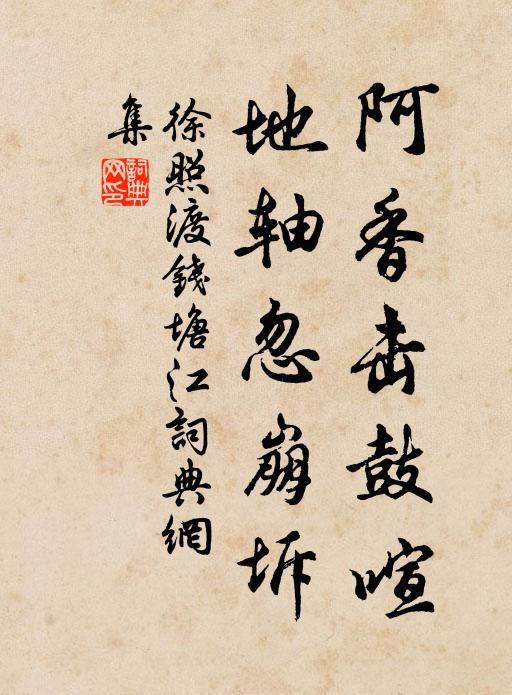 阿香击鼓喧
地轴忽崩坼
徐照渡錢塘江詞典網
集
詞典
网印